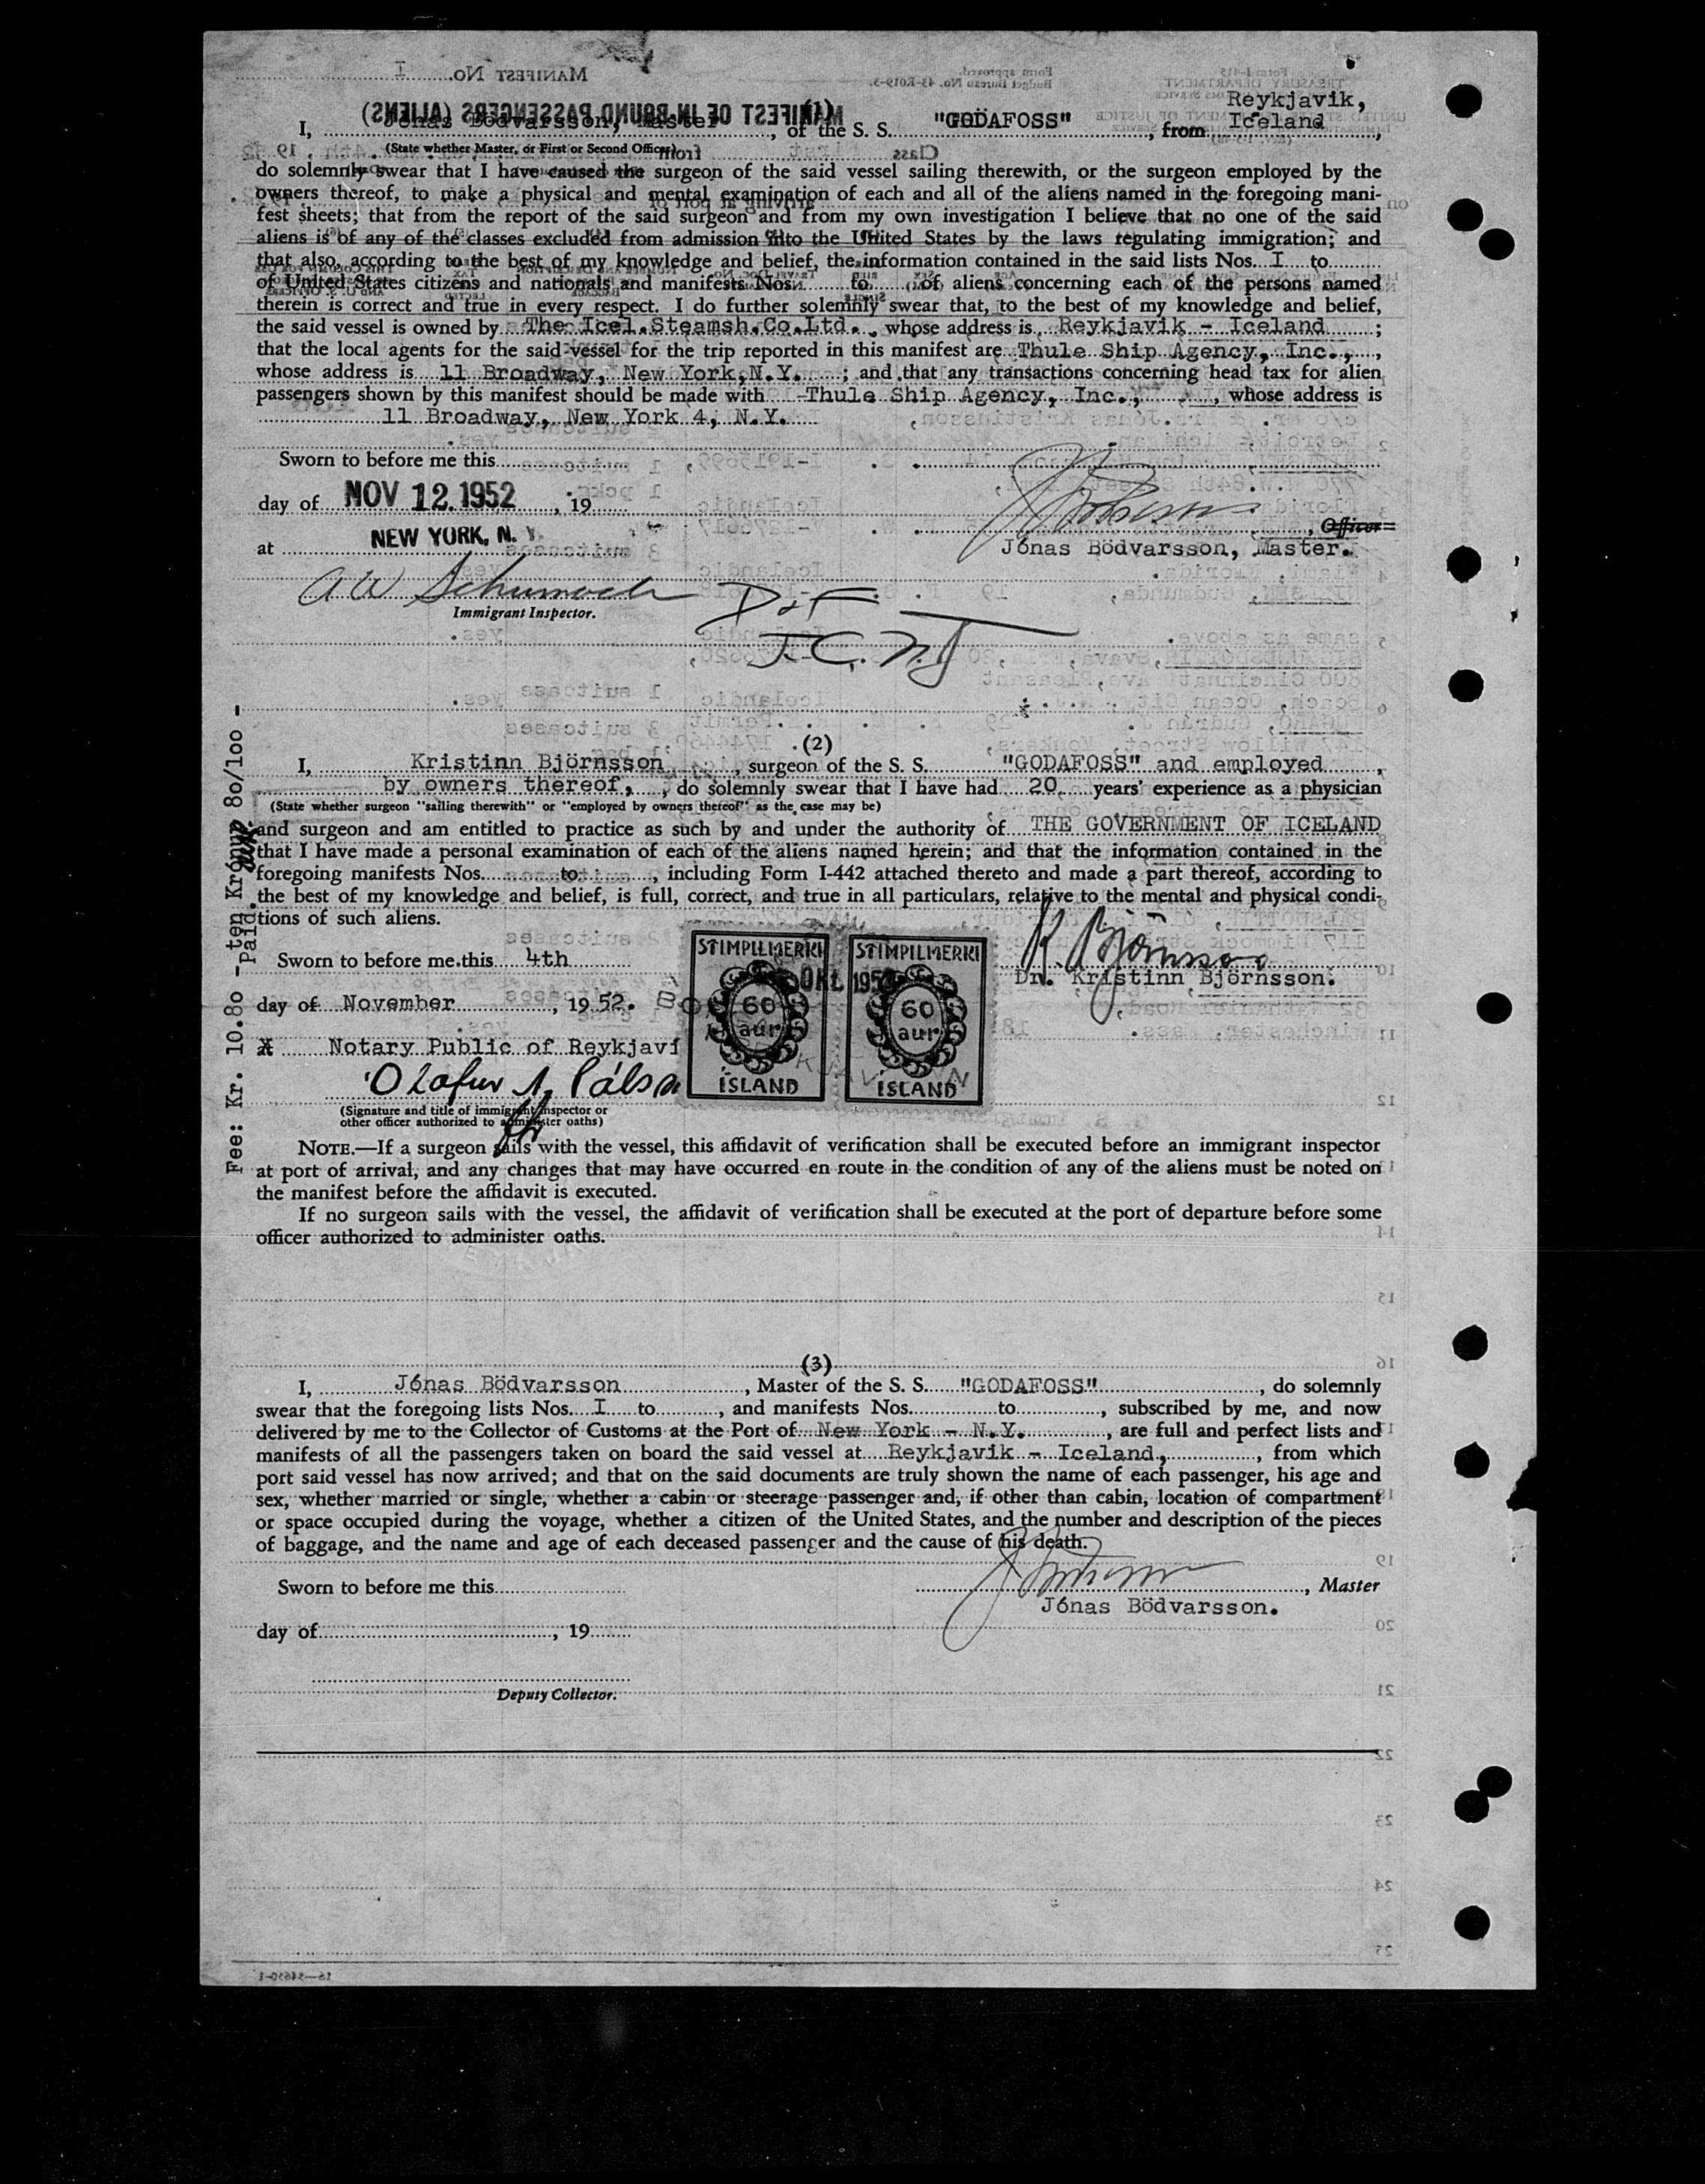 (1)
Reykjavik,
I, Jónas Bödvarsson, Master, of the S. S. "GODAFOSS", from Iceland,
(State whether Master, or First or Second Officer)
do solemnly swear that I have caused the surgeon of the said vessel sailing therewith, or the surgeon employed by the
owners thereof, to make a physical and mental examination of each and all of the aliens named in the foregoing mani-
fest sheets; that from the report of the said surgeon and from my own investigation I believe that no one of the said
aliens is of any of the classes excluded from admission into the United States by the laws regulating immigration; and
that also, according to the best of my knowledge and belief, the information contained in the said lists Nos. I to
of United States citizens and nationals and manifests Nos. to of aliens concerning each of the persons named
therein is correct and true in every respect. I do further solemnly swear that, to the best of my knowledge and belief,
the said vessel is owned by The Icel.Steamsh.Co.Ltd., whose address is Reykjavik - Iceland ;
that the local agents for the said vessel for the trip reported in this manifest are Thule Ship Agency, Inc.,,
whose address is 11 Broadway, New York,N.Y. ; and that any transactions concerning head tax for alien
passengers shown by this manifest should be made with Thule Ship Agency, Inc., , whose address is
11 Broadway, New York 4, N.Y.
Sworn to before me this
day of NOV 12 1952, 19
, Officer
at NEW YORK, N. Y.
Jónas Bödvarsson, Master.
A W Schumach
Immigrant Inspector.
D+F
J.C.N.J
(2)
I, Kristinn Björnsson, surgeon of the S. S. "GODAFOSS" and employed,
by owners thereof, , do solemnly swear that I have had 20 years' experience as a physician
(State whether surgeon "sailing therewith" or "employed by owners thereof" as the case may be)
and surgeon and am entitled to practice as such by and under the authority of THE GOVERNMENT OF ICELAND
that I have made a personal examination of each of the aliens named herein; and that the information contained in the
foregoing manifests Nos. to , including Form I-442 attached thereto and made a part thereof, according to
the best of my knowledge and belief, is full, correct, and true in all particulars, relative to the mental and physical condi-
tions of such aliens.
K. Björnsson
Sworn to before me this 4th
Dr. Kristinn Björnsson.
day of November, 1952.
Notary Public of Reykjaví
Olafur A. Pálss
(Signature and title of immigrant inspector or
other officer authorized to administer oaths)
STIMPILMERKI
60
aur
ÍSLAND
STIMPILMERKI
60
aur
ÍSLAND
OKT. 195
Fee: Kr. 10.80 - ten Krónur 80/100 -
Paid.
NOTE.—If a surgeon sails with the vessel, this affidavit of verification shall be executed before an immigrant inspector
at port of arrival, and any changes that may have occurred en route in the condition of any of the aliens must be noted on
the manifest before the affidavit is executed.
If no surgeon sails with the vessel, the affidavit of verification shall be executed at the port of departure before some
officer authorized to administer oaths.
(3)
I, Jónas Bödvarsson, Master of the S. S. "GODAFOSS", do solemnly
swear that the foregoing lists Nos. I to , and manifests Nos. to , subscribed by me, and now
delivered by me to the Collector of Customs at the Port of New York - N.Y. , are full and perfect lists and
manifests of all the passengers taken on board the said vessel at Reykjavik - Iceland, , from which
port said vessel has now arrived; and that on the said documents are truly shown the name of each passenger, his age and
sex, whether married or single, whether a cabin or steerage passenger and, if other than cabin, location of compartment
or space occupied during the voyage, whether a citizen of the United States, and the number and description of the pieces
of baggage, and the name and age of each deceased passenger and the cause of his death.
Sworn to before me this
, Master
Jónas Bödvarsson.
day of , 19
Deputy Collector.